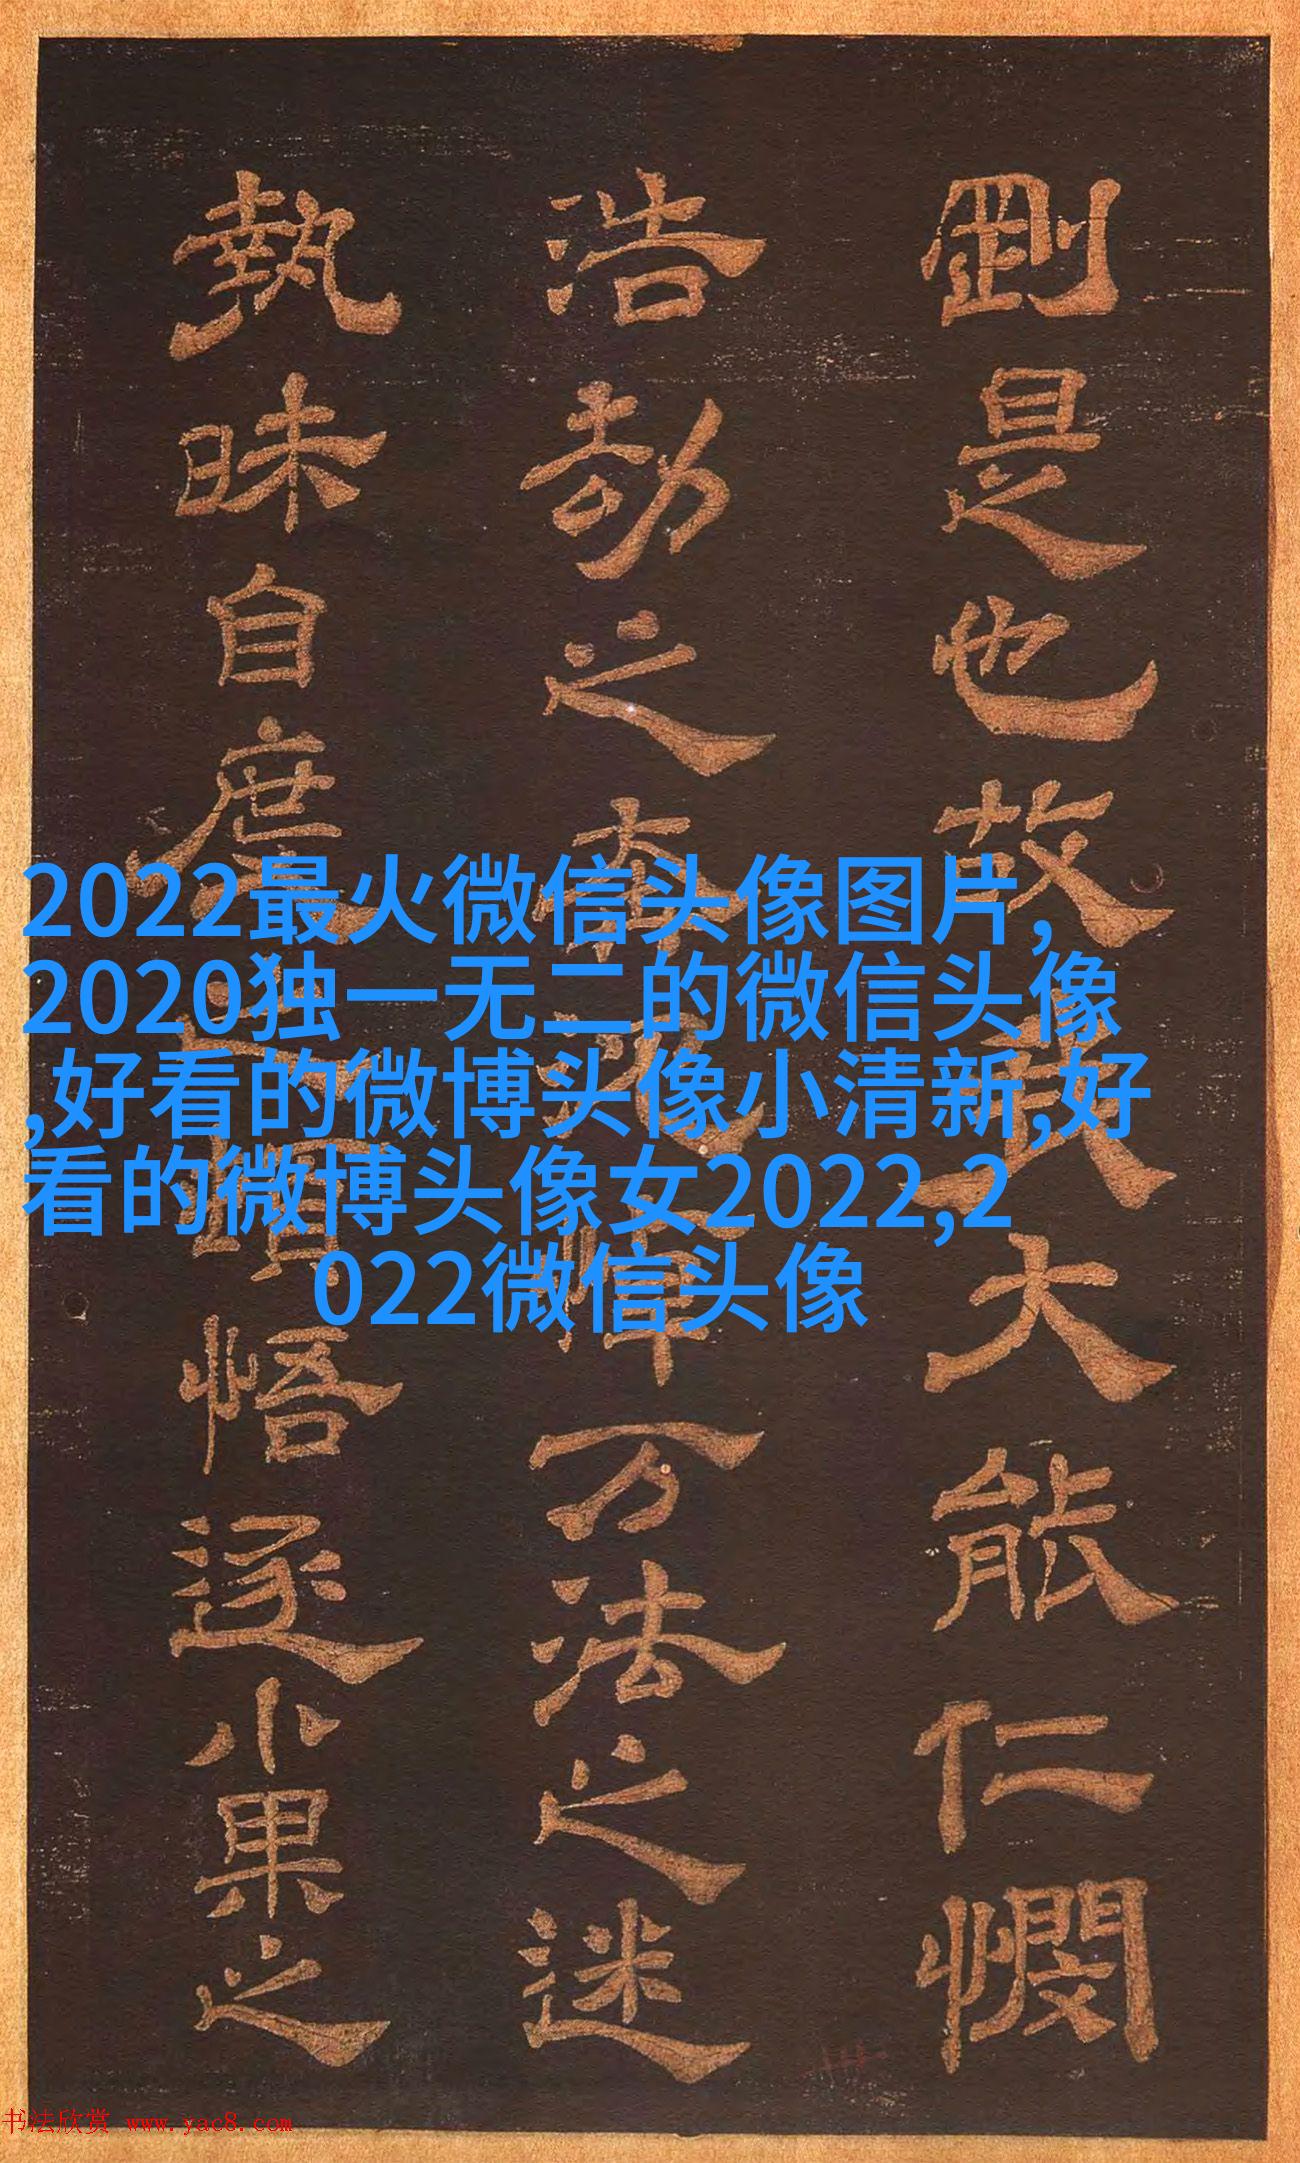 剛是也故我大能仁憫
浩劫之奔万法之迷
執昧自悟逐小果之
2022最火微信头像图片,
2020独一无二的微信头像
,好看的微博头像小清新,好
看的微博头像女2022,2
022微信头像
书法欣赏 www.yac8.com